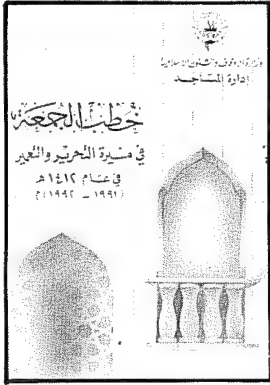 وزارة الأوقاف والشئون الإسلامية
إدارة المساجد
خطب الجمعة
في مسيرة التحرير والتعمير
في عام ١٤١٢هـ
(١٩٩١ - ١٩٩٢)م